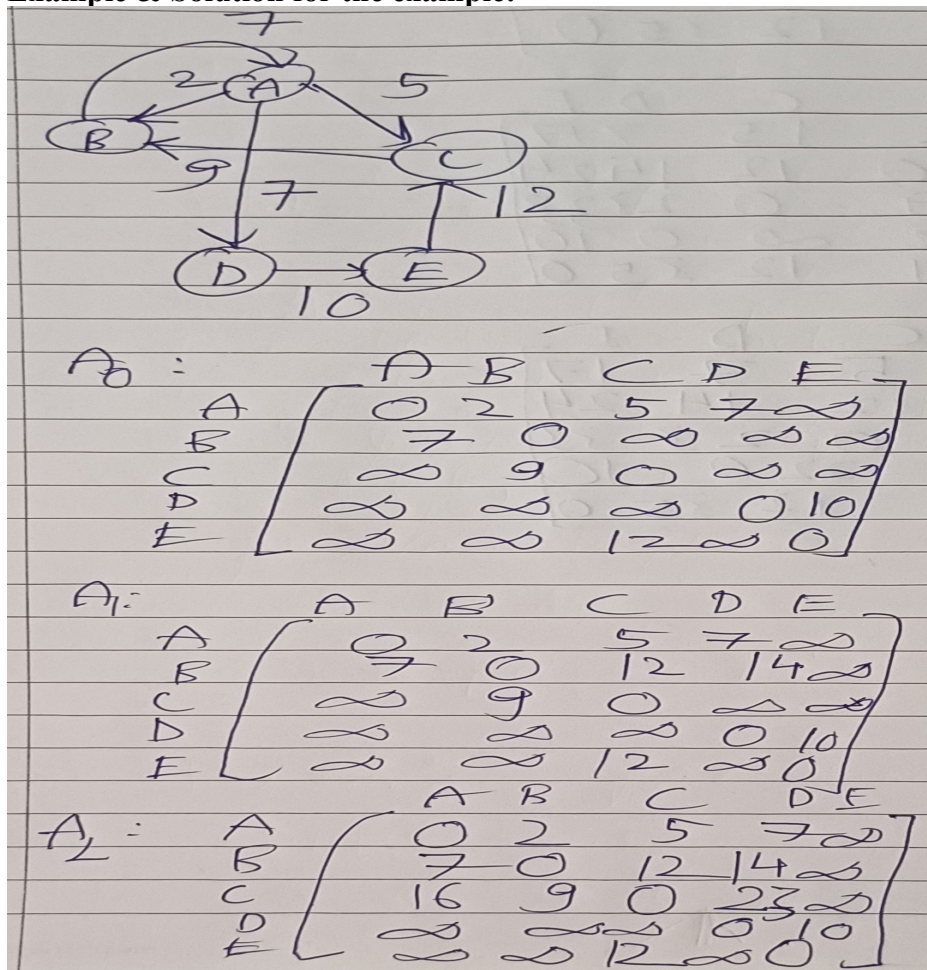 Example & Solution for the example:
7
2 A 5
B
9 C
7 12
D E
10
A0 : A B C D E
A 0 2 5 7 ∞
B 7 0 ∞ ∞ ∞
C ∞ 9 0 ∞ ∞
D ∞ ∞ ∞ 0 10
E ∞ ∞ 12 ∞ 0
A1: A B C D E
A 0 2 5 7 ∞
B 7 0 12 14 ∞
C ∞ 9 0 ∞ ∞
D ∞ ∞ ∞ 0 10
E ∞ ∞ 12 ∞ 0
A B C D E
A2 : A 0 2 5 7 ∞
B 7 0 12 14 ∞
C 16 9 0 23 ∞
D ∞ ∞ ∞ 0 10
E ∞ ∞ 12 ∞ 0